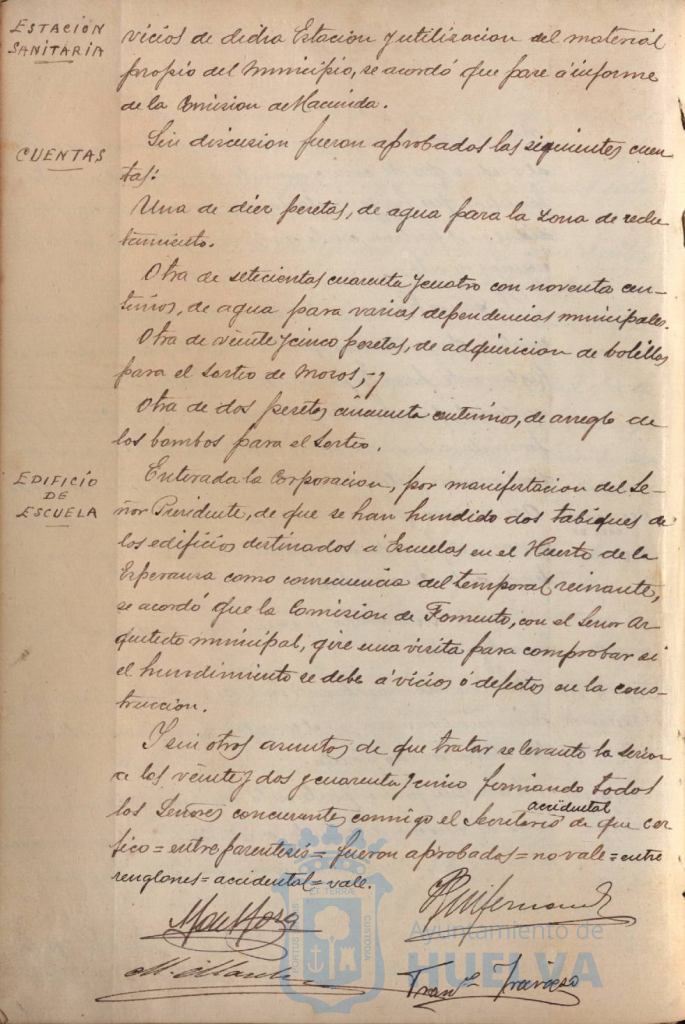 ESTACIÓN
SANITARIA
vicios de dicha Estacion y utilizacion del material
propio del Municipio, se acordó que pase á informe
de la Comision de Hacienda.
CUENTAS
Sin discusion fueron aprobadas las siguientes cuen-
tas:
Una de diez pesetas, de agua para la zona de reclu-
tamiento.
Otra de setecientas cuarenta y cuatro con noventa cen-
timos, de agua para varias dependencias municipales.
Otra de veinte y cinco pesetas, de adquisicion de bolillas
para el Sorteo de Mozos, y
Otra de dos pesetas cincuenta centimos, de arreglo de
los bombos para el Sorteo.
EDIFICIO
DE
ESCUELA
Enterada la Corporacion, por manifestacion del Se-
ñor Presidente, de que se han hundido dos tabiques de
los edificios destinados á Escuelas en el Huerto de la
Esperanza como consecuencia del temporal reinante,
se acordó que la Comision de Fomento, con el Señor Ar-
quitecto municipal, gire una visita para comprobar si
el hundimiento se debe á vicios ó defectos en la cons-
truccion.
Y sin otros asuntos de que tratar se levantó la sesion
a las veinte y dos y cuarenta y cinco firmando todos
los Señores concurrentes conmigo el Secretario accidental de que cer-
tifico = entre parentesis = fueron aprobados = no vale = entre
renglones = accidental = vale.
PORTUS MARIS
ET TERRAE
CUSTODIA
Ayuntamiento de
HUELVA